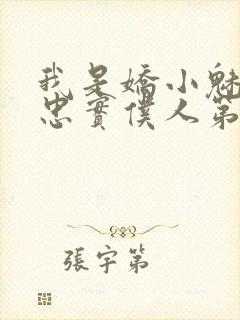 我是嬌小魅
忠實僕人第
張宇第